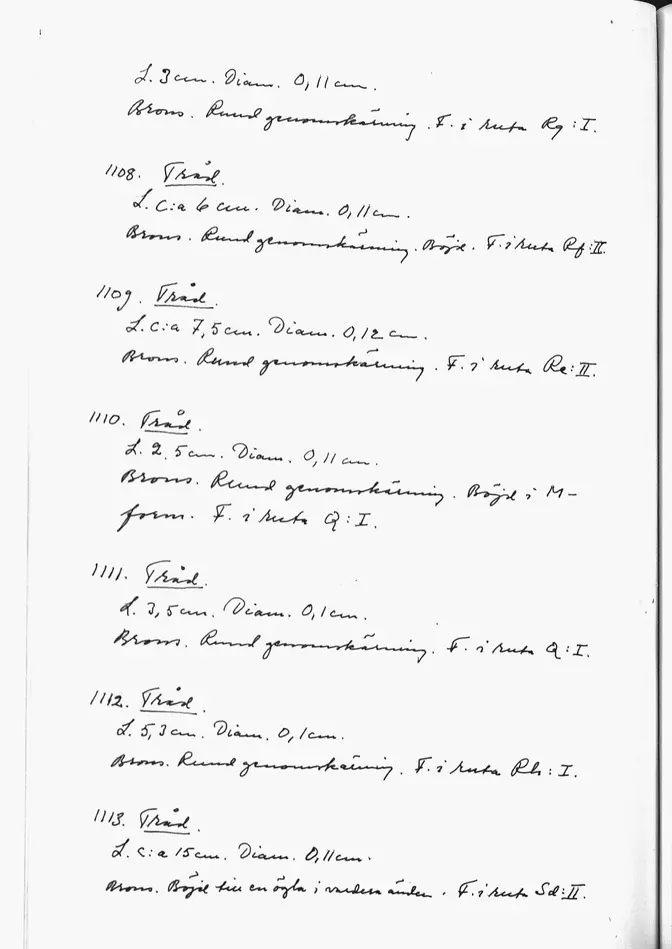 L. 3 cm. Diam. 0,11 cm.
Brons. Rund genomskärning. F. i ruta Rg:I.
1108. Tråd.
L. c:a 6 cm. Diam. 0,11 cm.
Brons. Rund genomskärning. Böjd. F. i ruta Rf:II.
1109. Tråd.
L. c:a 7,5 cm. Diam. 0,12 cm.
Brons. Rund genomskärning. F. i ruta Re:II.
1110. Tråd.
L. 2,5 cm. Diam. 0,11 cm.
Brons. Rund genomskärning. Böjd i M-
form. F. i ruta Q:I.
1111. Tråd.
L. 3,5 cm. Diam. 0,1 cm.
Brons. Rund genomskärning. F. i ruta Q:I.
1112. Tråd.
L. 5,3 cm. Diam. 0,1 cm.
Brons. Rund genomskärning. F. i ruta Rh:I.
1113. Tråd.
L. c:a 15 cm. Diam. 0,11 cm.
Brons. Böjd till en ögla i vardera änden. F. i ruta Sd:II.